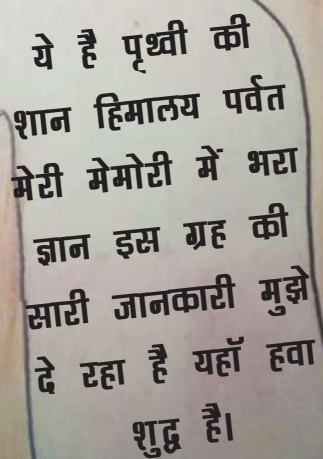 ये है पृथ्वी की
शान हिमालय पर्वत
मेरी मेमोरी में भरा
ज्ञान इस ग्रह की
सारी जानकारी मुझे
दे रहा है यहॉ हवा
शुद्ध है।